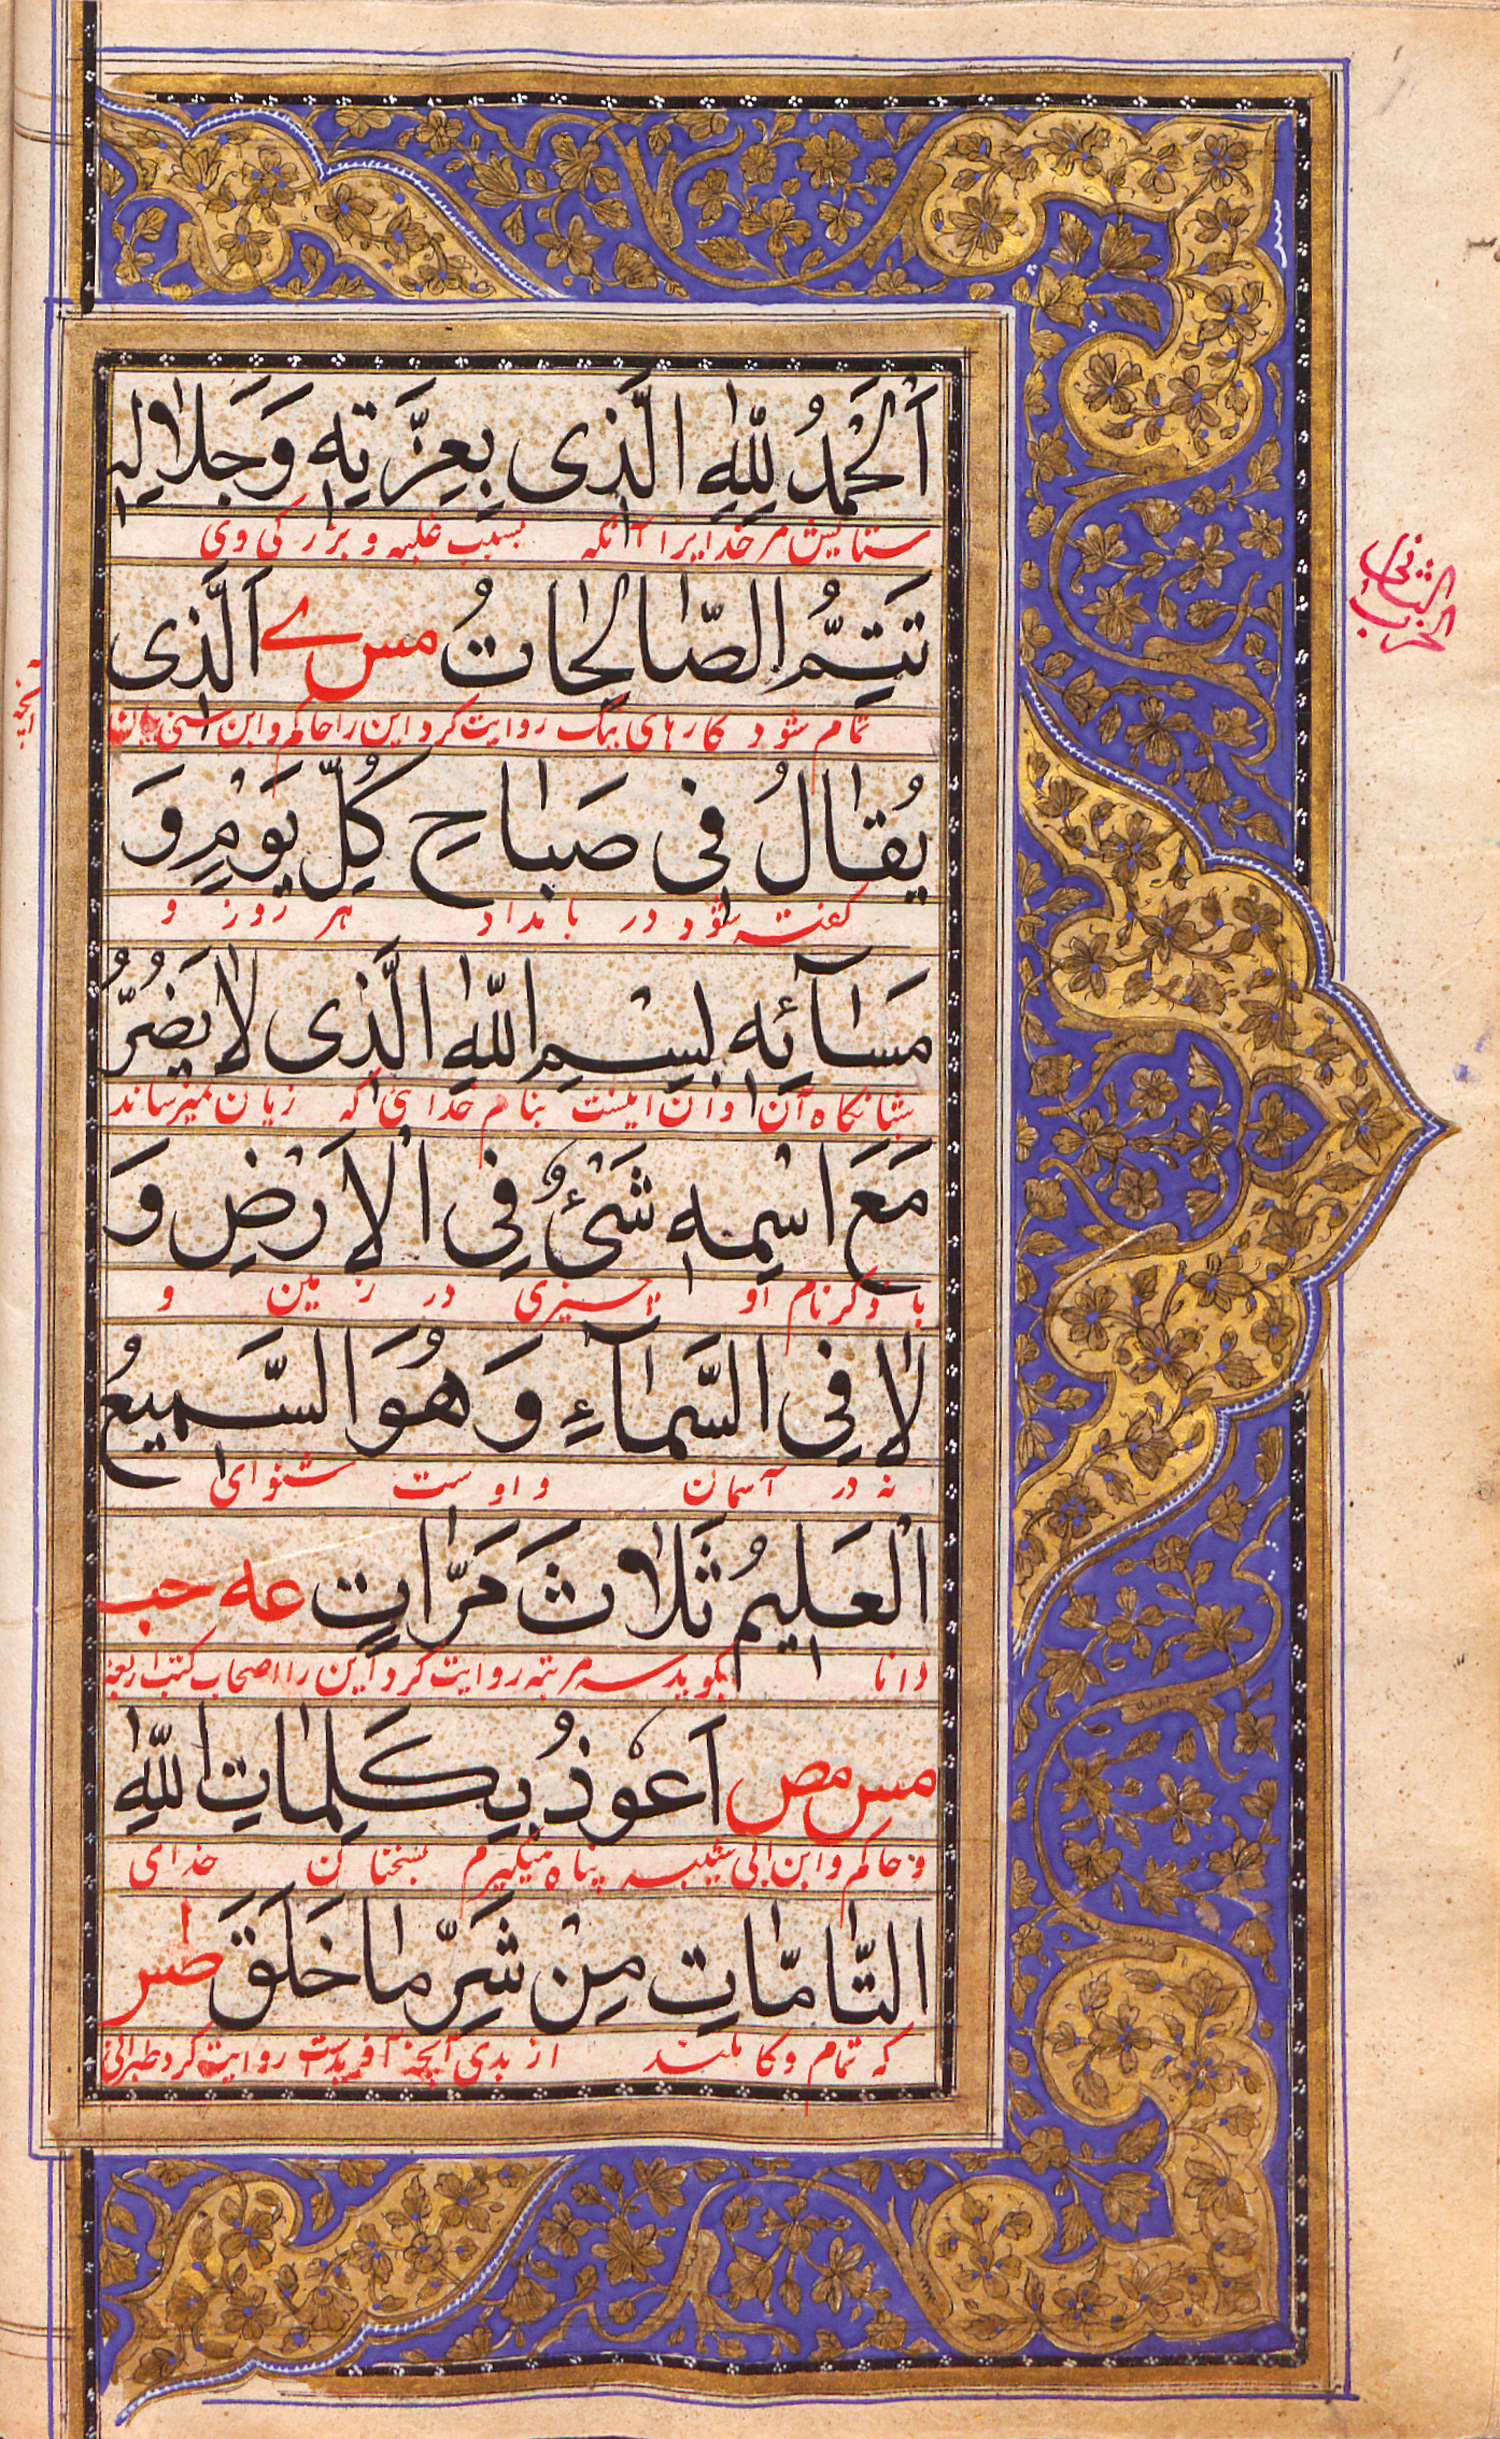 اَلْحَمْدُ لِلّٰهِ الَّذی بِعِزَّتِه وَجَلالِه
ستایش مر خدایرا آنکه بسبب غلبه و بزرکی وی
تَتِمُّ الصّالِحاتُ مس ے اَلَّذی
تمام شود کارهای نیک روایت کرد این را حاکم و ابن سنی
یُقالُ فی صَباحِ کُلِّ یَوْمٍ وَ
گفته شود در بامداد هر روز و
مَسآئِه بِسْمِ اللّٰهِ الَّذی لا یَضُرُّ
شبانکاه آن و آن اینست بنام خدائی که زیان نمیرساند
مَعَ اسْمِه شَیْئٌ فِی الْاَرْضِ وَ
با ذکر نام او چیزی در زمین و
لا فِی السَّمآءِ وَ هُوَ السَّمیعُ
نه در آسمان و اوست شنوای
الْعَلیمُ ثَلاثَ مَرّاتٍ عه حب
دانا بگوید سه مرتبه روایت کرد این را اصحاب کتب اربعه
مس مص اَعُوْذُ بِکَلِماتِ اللّٰهِ
و حاکم و ابن ابی شیبه پناه میگیرم بسخنان خدای
التّامّاتِ مِنْ شَرِّ ما خَلَقَ طس
که تمام و کاملند از بدی آنچه آفریدست روایت کرد طبرانی
الحزب الثانی